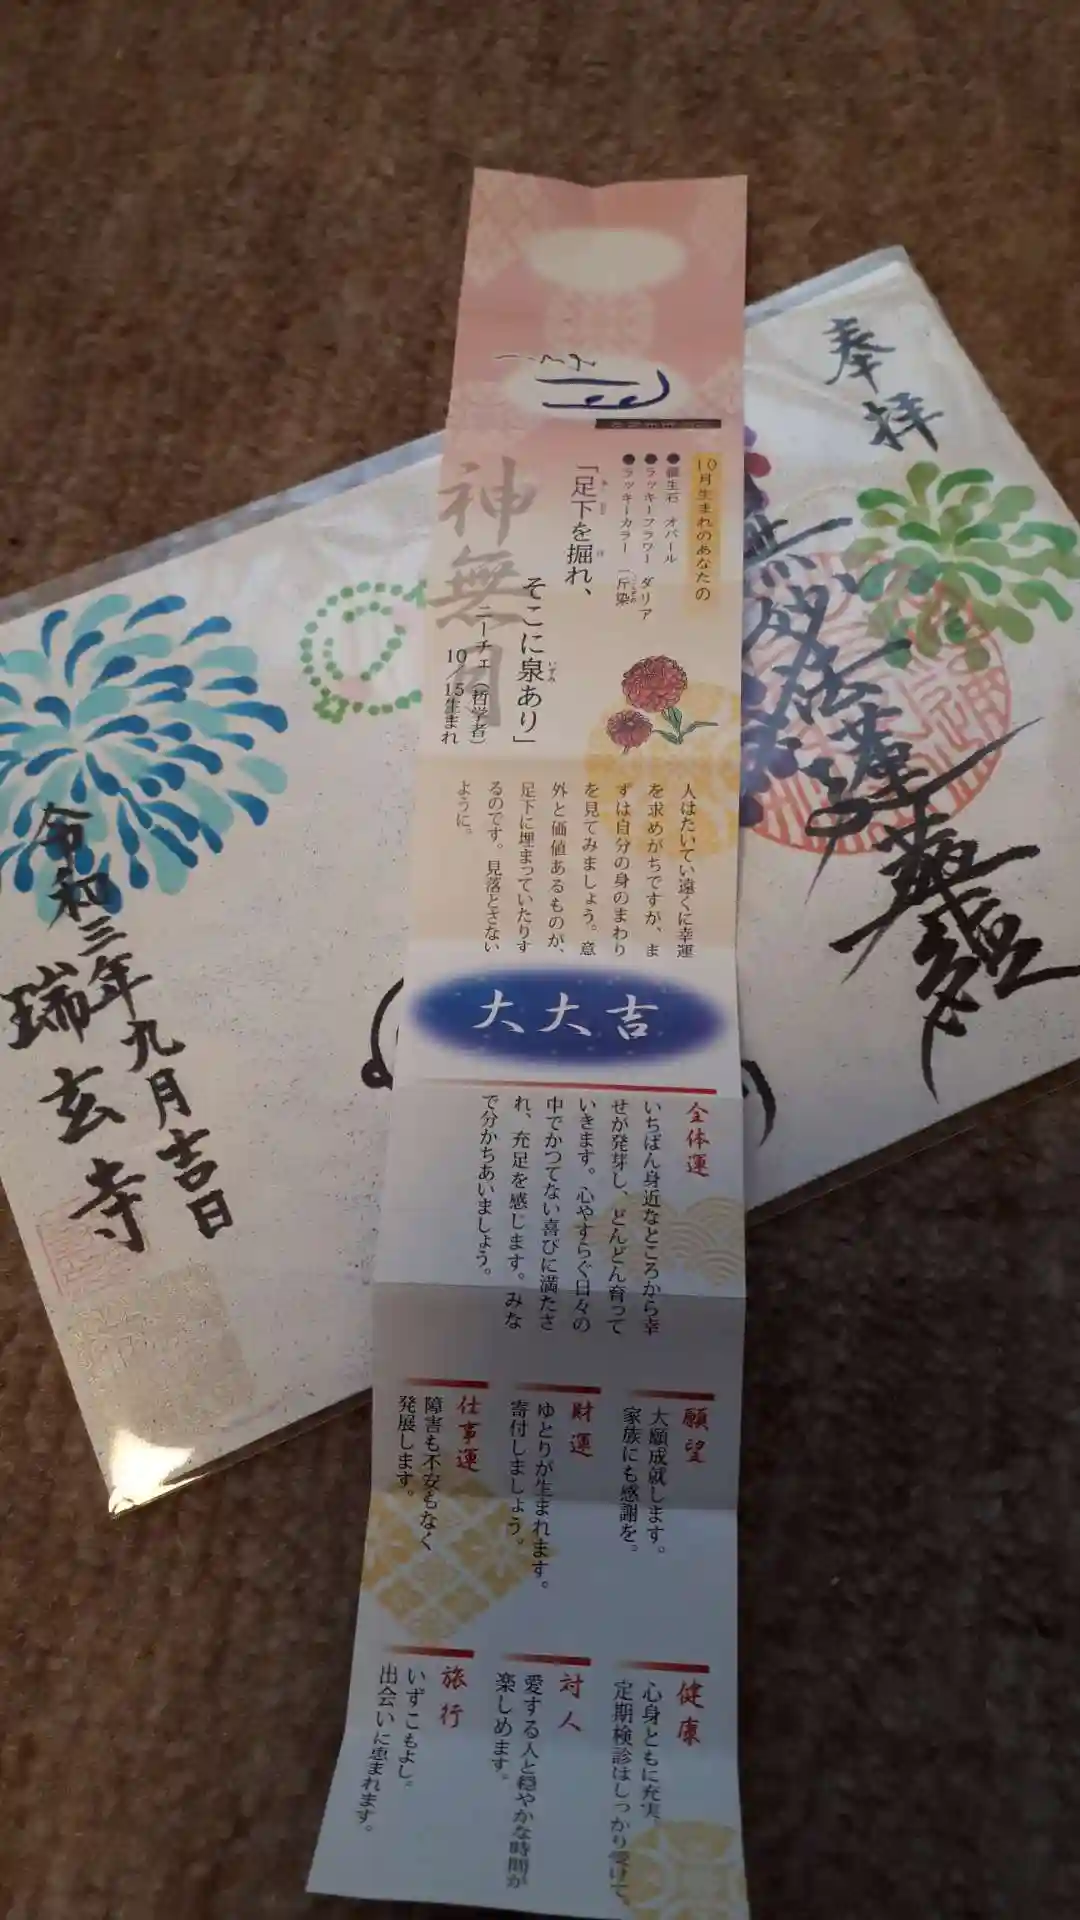 10月生まれのあなたの
●誕生石 オパール
●ラッキーフラワー ダリア
●ラッキーカラー 一斤染
「足下を掘れ、
そこに泉あり」
ニーチェ（哲学者）
10／15生まれ
神無月
人はたいてい遠くに幸運
を求めがちですが、ま
ずは自分の身のまわり
を見てみましょう。意
外と価値あるものが、
足下に埋まっていたりす
るのです。見落とさない
ように。
大大吉
全体運
いちばん身近なところから幸
せが発芽し、どんどん育って
いきます。心やすらぐ日々の
中でかつてない喜びに満たさ
れ、充足を感じます。みな
で分かちあいましょう。
願望
大願成就します。
家族にも感謝を。
財運
ゆとりが生まれます。
寄付しましょう。
仕事運
障害も不安もなく
発展します。
健康
心身ともに充実。
定期検診はしっかり受けて。
対人
愛する人と穏やかな時間が
楽しめます。
旅行
いずこもよし。
出会いに恵まれます。
奉拝
南無妙法蓮華経
令和三年九月吉日
瑞玄寺